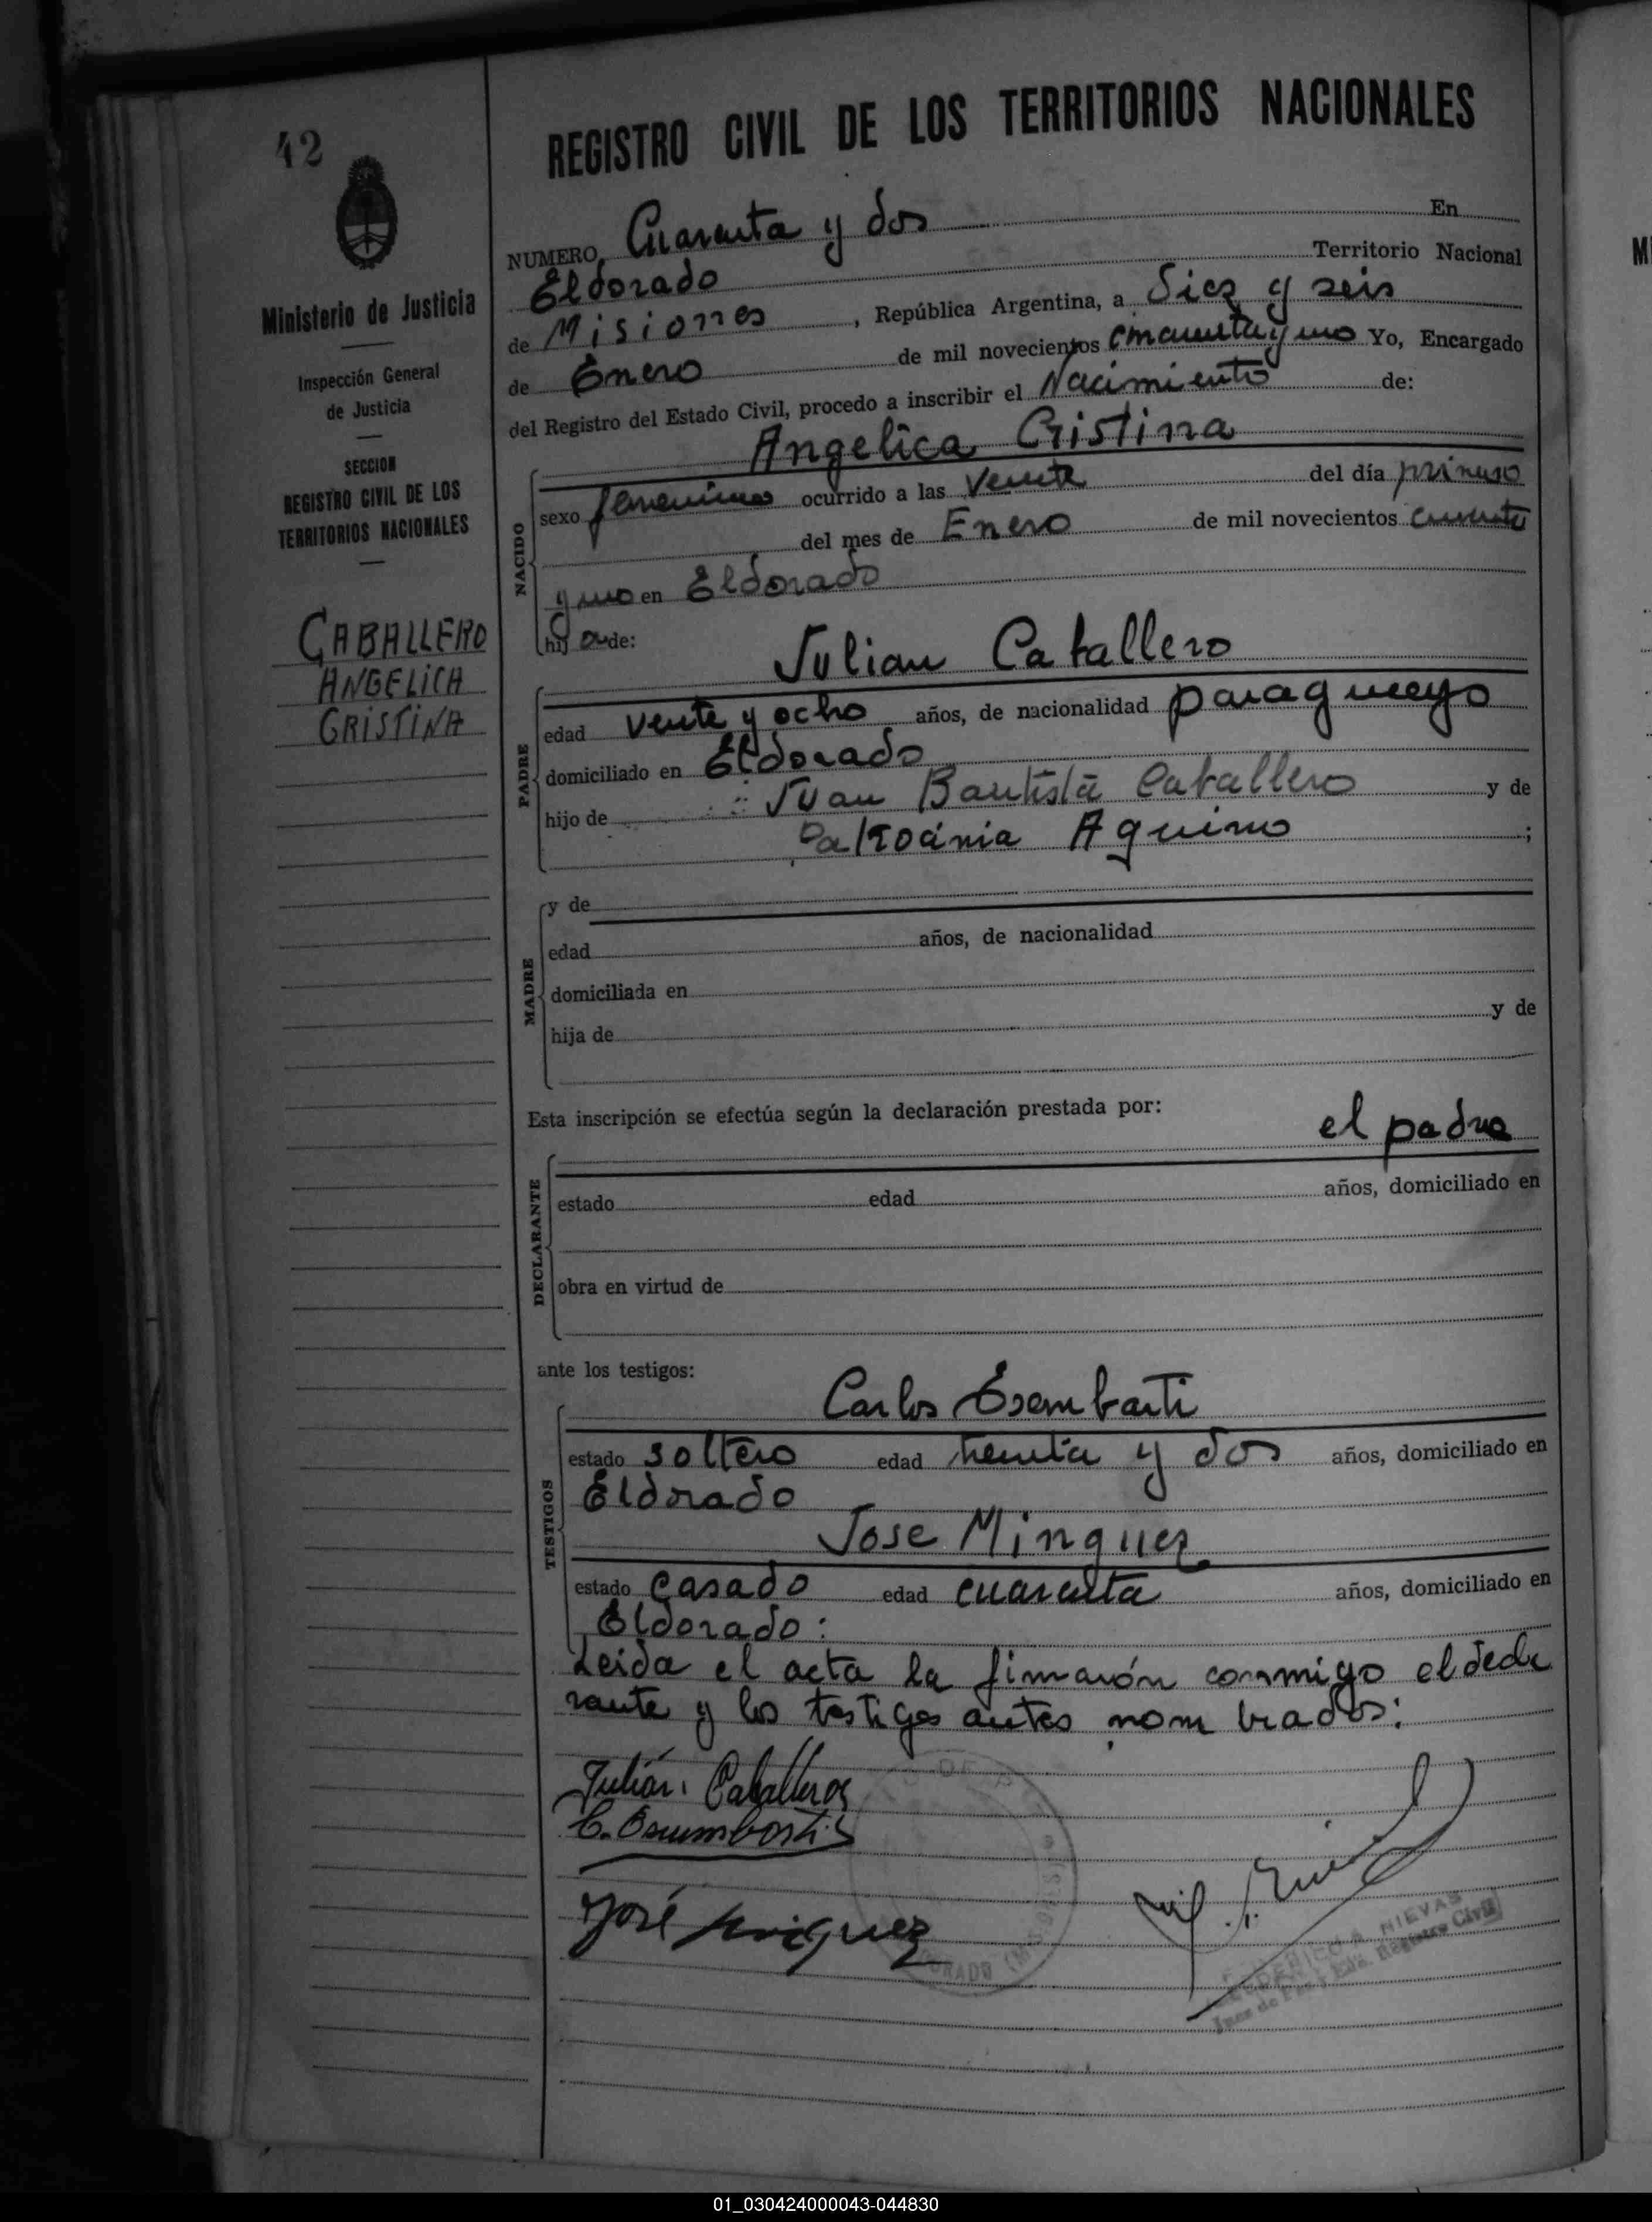 42
REGISTRO CIVIL DE LOS TERRITORIOS NACIONALES
Ministerio de Justicia
Inspección General
de Justicia
SECCION
REGISTRO CIVIL DE LOS
TERRITORIOS NACIONALES
CABALLERO
ANGELICA
CRISTINA
NUMERO Cuarenta y dos En
Eldorado Territorio Nacional
de Misiones, República Argentina, a Diez y seis
de Enero de mil novecientos cincuenta y uno Yo, Encargado
del Registro del Estado Civil, procedo a inscribir el Nacimiento de:
Angelica Cristina
NACIDO
sexo femenino ocurrido a las veinte del día primero
del mes de Enero de mil novecientos cincuenta
y uno en Eldorado
hij a de:
Julian Caballero
PADRE
edad veinte y ocho años, de nacionalidad paraguayo
domiciliado en Eldorado
hijo de Juan Bautista Caballero y de
Aquino ;
MADRE
y de
edad años, de nacionalidad
domiciliada en
hija de y de
Esta inscripción se efectúa según la declaración prestada por:
el padre
DECLARANTE
estado edad años, domiciliado en
obra en virtud de
ante los testigos:
Carlos Esembarti
TESTIGOS
estado soltero edad treinta y dos años, domiciliado en
Eldorado
Jose Minguez
estado casado edad cuarenta años, domiciliado en
Eldorado:
Leida el acta la firmarón conmigo el decla
rante y los testigos antes nombrados:
Julián Caballero
José Minguez
FEDERICO A. NIEVAS
Juez de Paz y Enc. Registro Civil
01_030424000043-044830